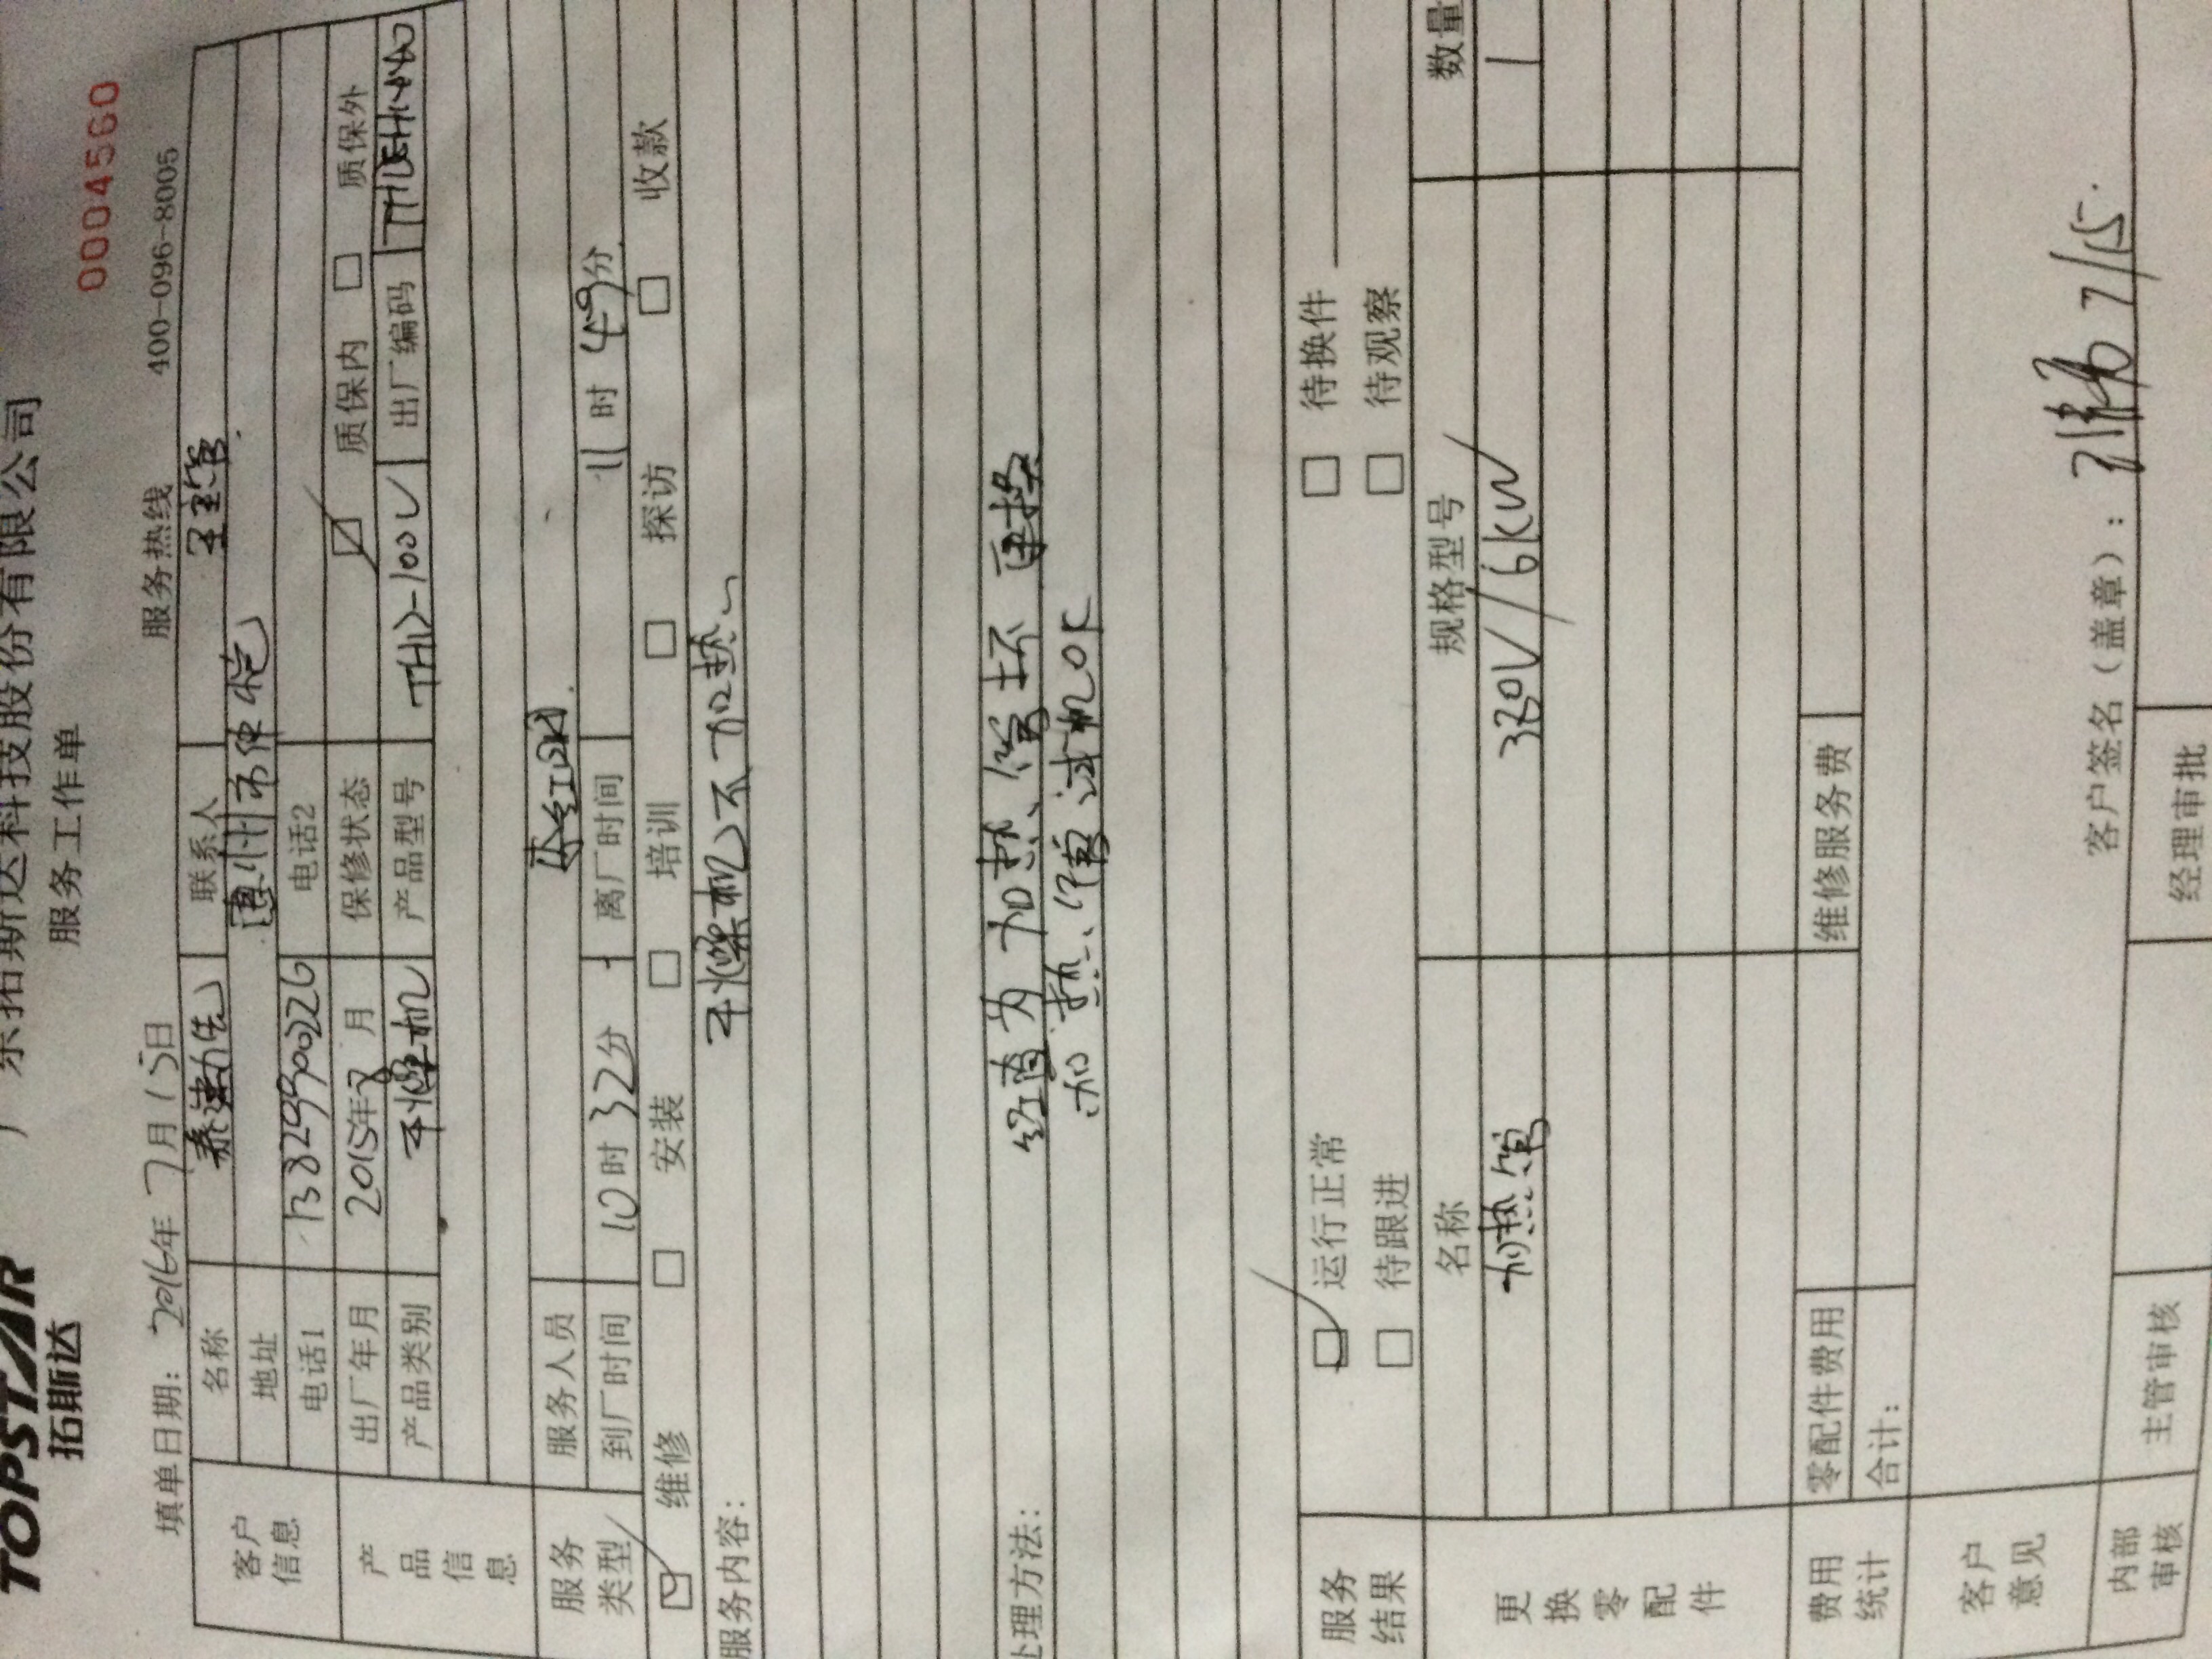 TOPSTAR
拓斯达
广东拓斯达科技股份有限公司
服务工作单
0004560
填单日期: 2016年7月15日 服务热线 400-096-8005
客户信息
名称 联系人
地址
电话1 13829900226 电话2
产品信息
出厂年月 2015年 月 保修状态 ☑ 质保内 □ 质保外
产品类别 干燥机 产品型号 出厂编码
服务人员
到厂时间 10时32分 离厂时间 11时49分
服务类型
☑ 维修 □ 安装 □ 培训 □ 探访 □ 收款
服务内容: 干燥机不加热
处理方法: 经查为加热管坏 更换
加热管试机OK
服务结果
☑ 运行正常 □ 待换件
□ 待跟进 □ 待观察
更换零配件
名称 规格型号 数量
加热管 380V/6kW 1
费用统计
零配件费用 维修服务费
合计:
客户意见
客户签名(盖章): 7/15.
内部审核 主管审核 经理审批